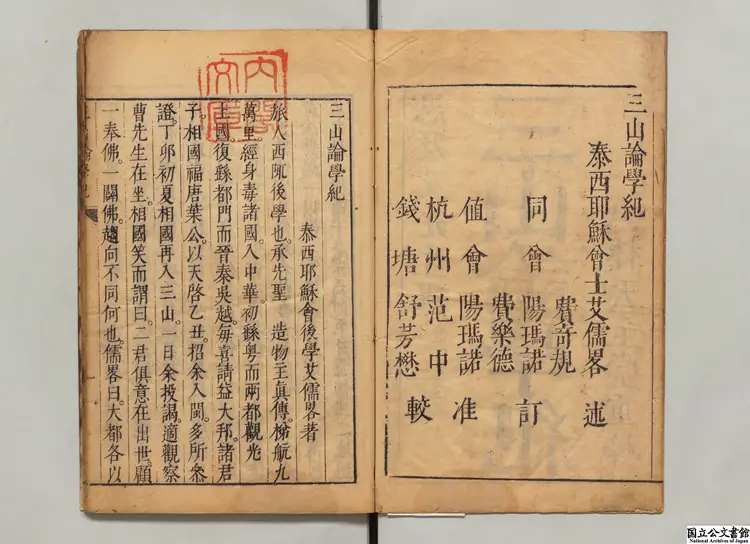 三山論學紀
泰西耶穌會士艾儒畧 述
費奇規
同會 陽瑪諾 訂
費樂德
值會 陽瑪諾 准
杭州 范中
錢塘 舒芳懋 較
三山論學紀
泰西耶穌會後學艾儒畧著
旅人西陬後學也。承先聖 造物主眞傳。梯航九
萬里。經身毒諸國。入中華。初繇粤而兩都觀光
上國。復繇都門而晉秦吳越。每喜請益大邦諸君
子。相國福唐葉公。以天啓乙丑。招余入閩。多所參
證。丁卯初夏。相國再入三山。一日余投謁。適觀察
曹先生在坐。相國笑而謂曰。二君俱意在出世。顧
一奉佛。一闢佛。趨向不同何也。儒畧曰。大都各以
三山論學紀
内閣文庫
国立公文書館
National Archives of Japan